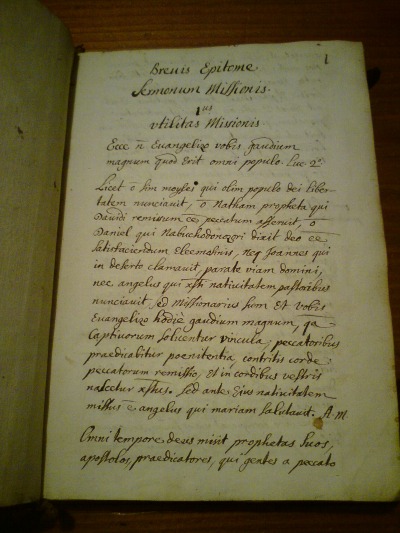 1
Brevis Epitome
Sermonum Missionis.
1us
utilitas Missionis
Ecce n̄ Euangelizo vobis gaudium
magnum quod erit omni populo. Luc 2º
Licet ō sim moyses qui olim populo dei liber-
tatem nunciavit, ō Natham propheta qui
Davidi remissum ēe peccatum asseruit, ō
Daniel qui Nabuchodonozori dixit deo ēe
satisfaciendum Eleemosinis, neq Joannes qui
in deserto clamavit, parate viam domini,
nec angelus qui xsti nativitatem pastoribus
nunciavit, sed Missionarius sum et vobis
Euangelizo hodie gaudium magnum, qa
Captivorum solventur vincula, peccatoribus
praedicabitur poenitentia, contritis corde
peccatorum remissio, et in cordibus vestris
nascetur xstus. Sed ante Eius nativitatem
missus ē angelus qui mariam salutavit. A. M.
Omni tempore deus misit prophetas suos,
apostolos, praedicatores, qui gentes a peccato